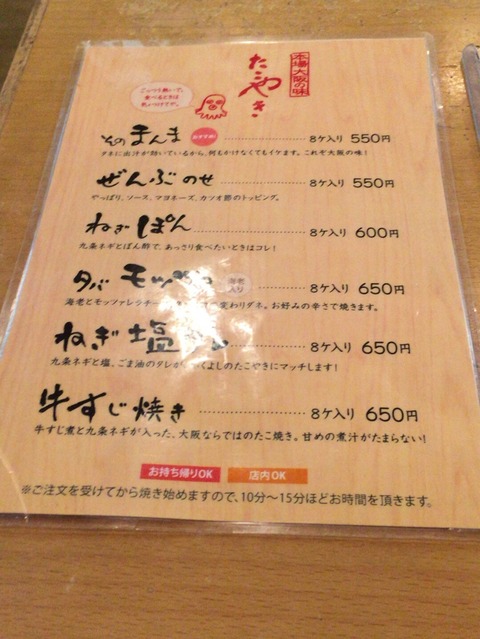 本場大阪の味
たこやき
ごっつう熱いで、
食べるときは
気ぃつけてや。
そのまんま おすすめ! 8ケ入り 550円
タネに出汁が効いているから、何もかけなくてもイケます。これぞ大阪の味!
ぜんぶのせ 8ケ入り 550円
やっぱり、ソース、マヨネーズ、カツオ節のトッピング。
ねぎぽん 8ケ入り 600円
九条ネギとぽん酢で、あっさり食べたいときはコレ!
タバモッツァ 海老入り 8ケ入り 650円
海老とモッツァレラチー 変わりダネ。お好みの辛さで焼きます。
ねぎ塩 8ケ入り 650円
九条ネギと塩、ごま油のタレが、 くよしのたこやきにマッチします!
牛すじ焼き 8ケ入り 650円
牛すじ煮と九条ネギが入った、大阪ならではのたこ焼き。甘めの煮汁がたまらない!
お持ち帰りOK 店内OK
※ご注文を受けてから焼き始めますので、10分〜15分ほどお時間を頂きます。